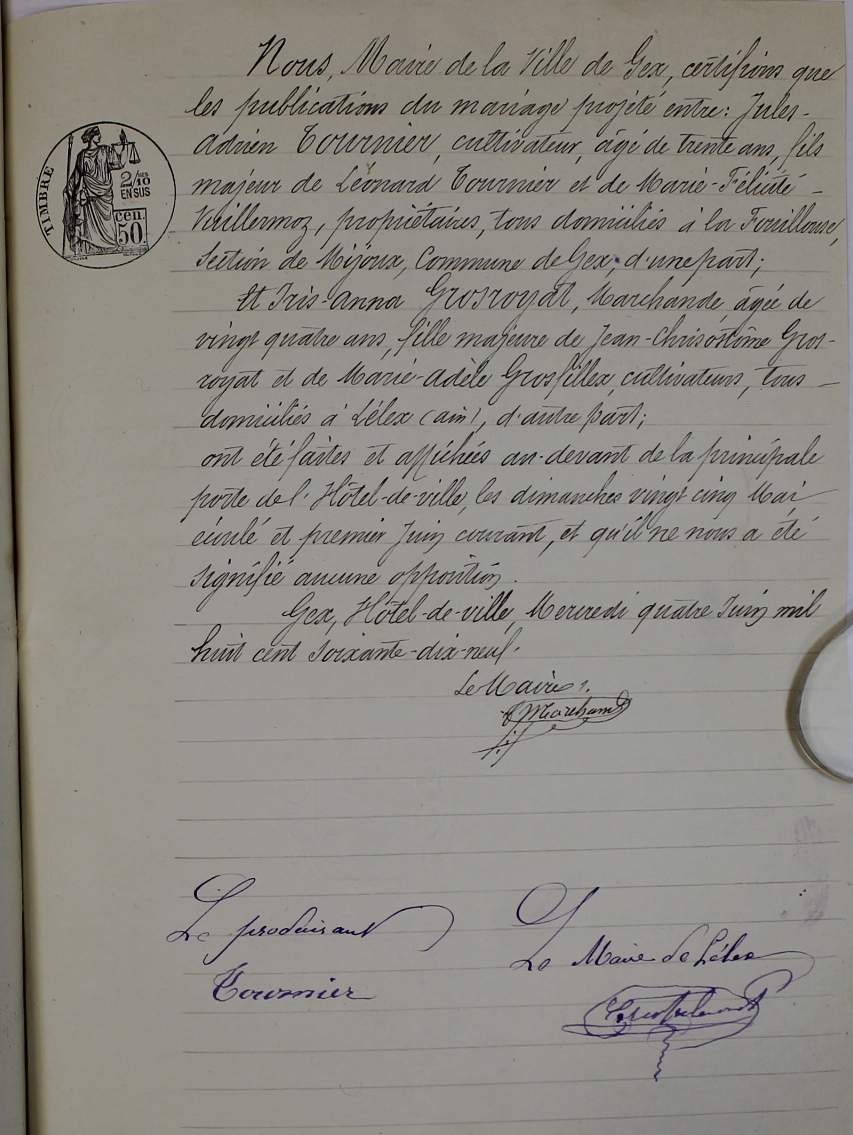 Nous, Maire de la Ville de Gex, certifions que
les publications du mariage projeté entre: Jules-
adrien Tournier, cultivateur, âgé de trente ans, fils
majeur de Léonard Tournier et de Marie-Félicité-
Vuillermoz, propriétaires, tous domiciliés à la Fouillouse,
Section de Mijoux, Commune de Gex, d'une part;
Et Iris-Anna Grosroyat, Marchande, âgée de
vingt quatre ans, fille majeure de Jean-Chrisostôme Gros-
royat et de Marie-Adèle Grosfillex, cultivateurs, tous
domiciliés à Lélex (ain), d'autre part;
ont été faites et affichées au-devant de la principale
porte de l'Hôtel-de-ville, les dimanches vingt cinq Mai
écoulé et premier Juin courant, et qu'il ne nous a été
signifié aucune opposition.
Gex, Hôtel-de-ville, Mercredi quatre Juin mil
huit cent soixante-dix-neuf.
Le Maire,
Marchand
TIMBRE
2/10 EN SUS
50 cen.
Le produisant
Tournier
Le Maire de Lélex